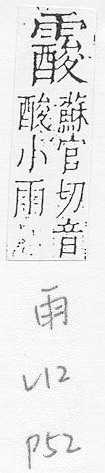 蘇官切音
酸小雨
雨
V12
P52